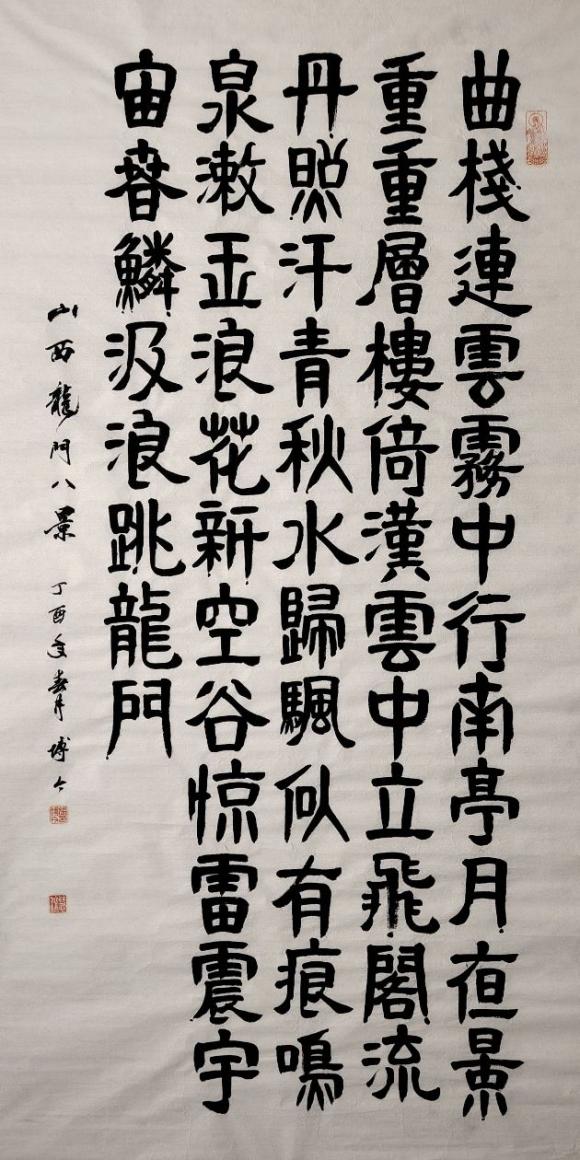 曲棧連雲霧中行南亭月亱景
重重層樓倚漢雲中立飛閣流
丹照汗青秋水歸颿似有痕鳴
泉漱玉浪花新空谷惊雷震宇
宙春鱗汲浪跳龍門
山西龍門八景 丁酉年春月博